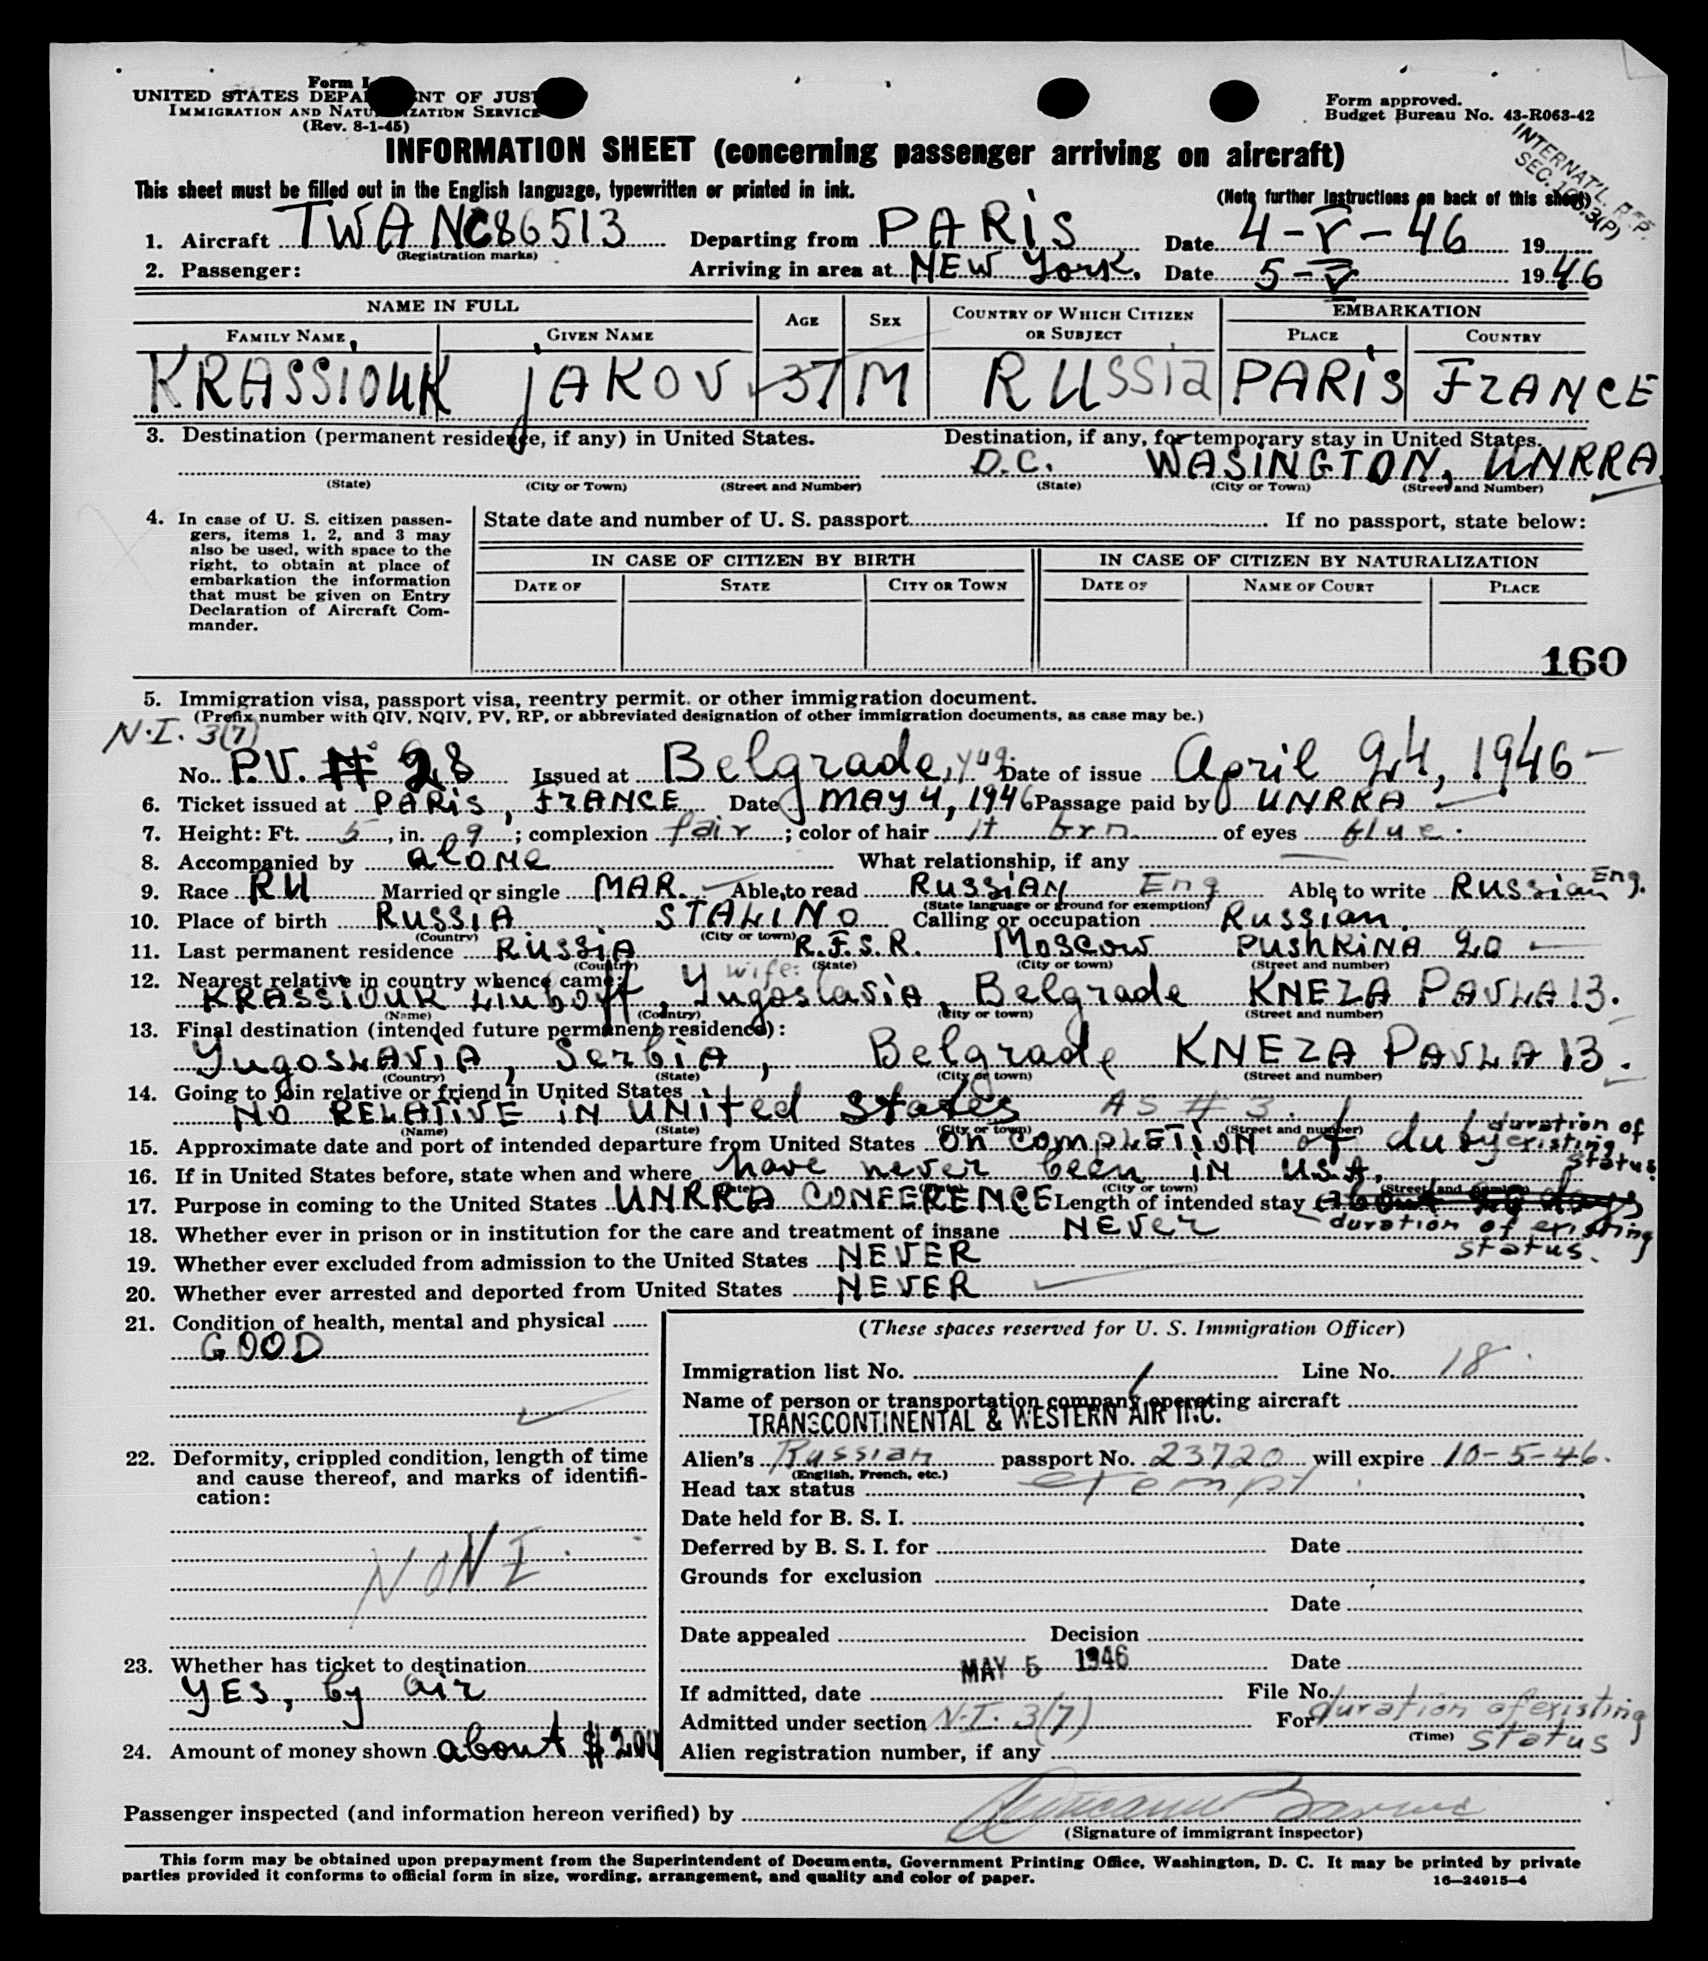 Form I-
UNITED STATES DEPA NT OF JUS
IMMIGRATION AND NATU ZATION SERVICE
(Rev. 8-1-45)
Form approved.
Budget Bureau No. 43-R063-42
INTERNAT'L. REP.
SEC. 3(P)
INFORMATION SHEET (concerning passenger arriving on aircraft)
This sheet must be filled out in the English language, typewritten or printed in ink.
(Note further instructions on back of this sheet)
1. Aircraft TWA NC86513 Departing from PARiS Date 4-V-46 19
(Registration marks)
2. Passenger: Arriving in area at NEW York. Date 5-V 1946
NAME IN FULL AGE SEX COUNTRY OF WHICH CITIZEN OR SUBJECT EMBARKATION
FAMILY NAME GIVEN NAME PLACE COUNTRY
KRASSIOUK jAKOV 37 M RUSSia PARiS FrANCE
3. Destination (permanent residence, if any) in United States. Destination, if any, for temporary stay in United States.
D.C. WASINGTON, UNRRA
(State) (City or Town) (Street and Number) (State) (City or Town) (Street and Number)
4. In case of U. S. citizen passengers, items 1, 2, and 3 may also be used, with space to the right, to obtain at place of embarkation the information that must be given on Entry Declaration of Aircraft Commander.
State date and number of U. S. passport If no passport, state below:
IN CASE OF CITIZEN BY BIRTH IN CASE OF CITIZEN BY NATURALIZATION
DATE OF STATE CITY OR TOWN DATE OF NAME OF COURT PLACE
160
5. Immigration visa, passport visa, reentry permit. or other immigration document.
(Prefix number with QIV, NQIV, PV, RP, or abbreviated designation of other immigration documents, as case may be.)
N.I. 3(7)
No. P.V. # 28 Issued at Belgrade, Yug. Date of issue April 24, 1946
6. Ticket issued at PARiS, FrANCE Date MAY 4, 1946 Passage paid by UNRRA
7. Height: Ft. 5, in. 9; complexion fair; color of hair lt brn of eyes blue.
8. Accompanied by alone What relationship, if any
9. Race RU Married or single MAR. Able to read RUSSiAN Eng Able to write Russian Eng.
(State language or ground for exemption)
10. Place of birth RUSSIA STALINO Calling or occupation Russian.
(Country) (City or town)
11. Last permanent residence RUSSiA R.F.S.R. MOSCOW PUSHKINA 20
(Country) (State) (City or town) (Street and number)
12. Nearest relative in country whence came: wife:
KRASSIOUK Liuboff, Yugoslavia, Belgrade KNEZA PAVLA 13.
(Name) (Country) (City or town) (Street and number)
13. Final destination (intended future permanent residence):
Yugoslavia, Serbia, Belgrade KNEZA PAVLA 13.
(Country) (State) (City or town) (Street and number)
14. Going to join relative or friend in United States
NO RELATIVE iN UNited States AS # 3.
(Name) (State) (City or town) (Street and number)
15. Approximate date and port of intended departure from United States On COMPLETION of duty duration of existing status
16. If in United States before, state when and where have never been in U.S.A.
(City or town) (Street and number)
17. Purpose in coming to the United States UNRRA CONFERENCE Length of intended stay about 20 days
duration of existing status.
18. Whether ever in prison or in institution for the care and treatment of insane NEVer
19. Whether ever excluded from admission to the United States NEVER
20. Whether ever arrested and deported from United States NEVER
21. Condition of health, mental and physical
GOOD
22. Deformity, crippled condition, length of time and cause thereof, and marks of identification:
NONE
23. Whether has ticket to destination
YES, by air
24. Amount of money shown about $200
(These spaces reserved for U. S. Immigration Officer)
Immigration list No. 1 Line No. 18
Name of person or transportation company operating aircraft
TRANSCONTINENTAL & WESTERN AIR INC.
Alien's Russian passport No. 23720 will expire 10-5-46.
(English, French, etc.)
Head tax status exempt
Date held for B. S. I.
Deferred by B. S. I. for Date
Grounds for exclusion
Date
Date appealed Decision
MAY 5 1946 Date
If admitted, date File No.
Admitted under section N.I. 3(7) For duration of existing status
(Time)
Alien registration number, if any
Passenger inspected (and information hereon verified) by
(Signature of immigrant inspector)
This form may be obtained upon prepayment from the Superintendent of Documents, Government Printing Office, Washington, D. C. It may be printed by private
parties provided it conforms to official form in size, wording, arrangement, and quality and color of paper.
16—24915-4